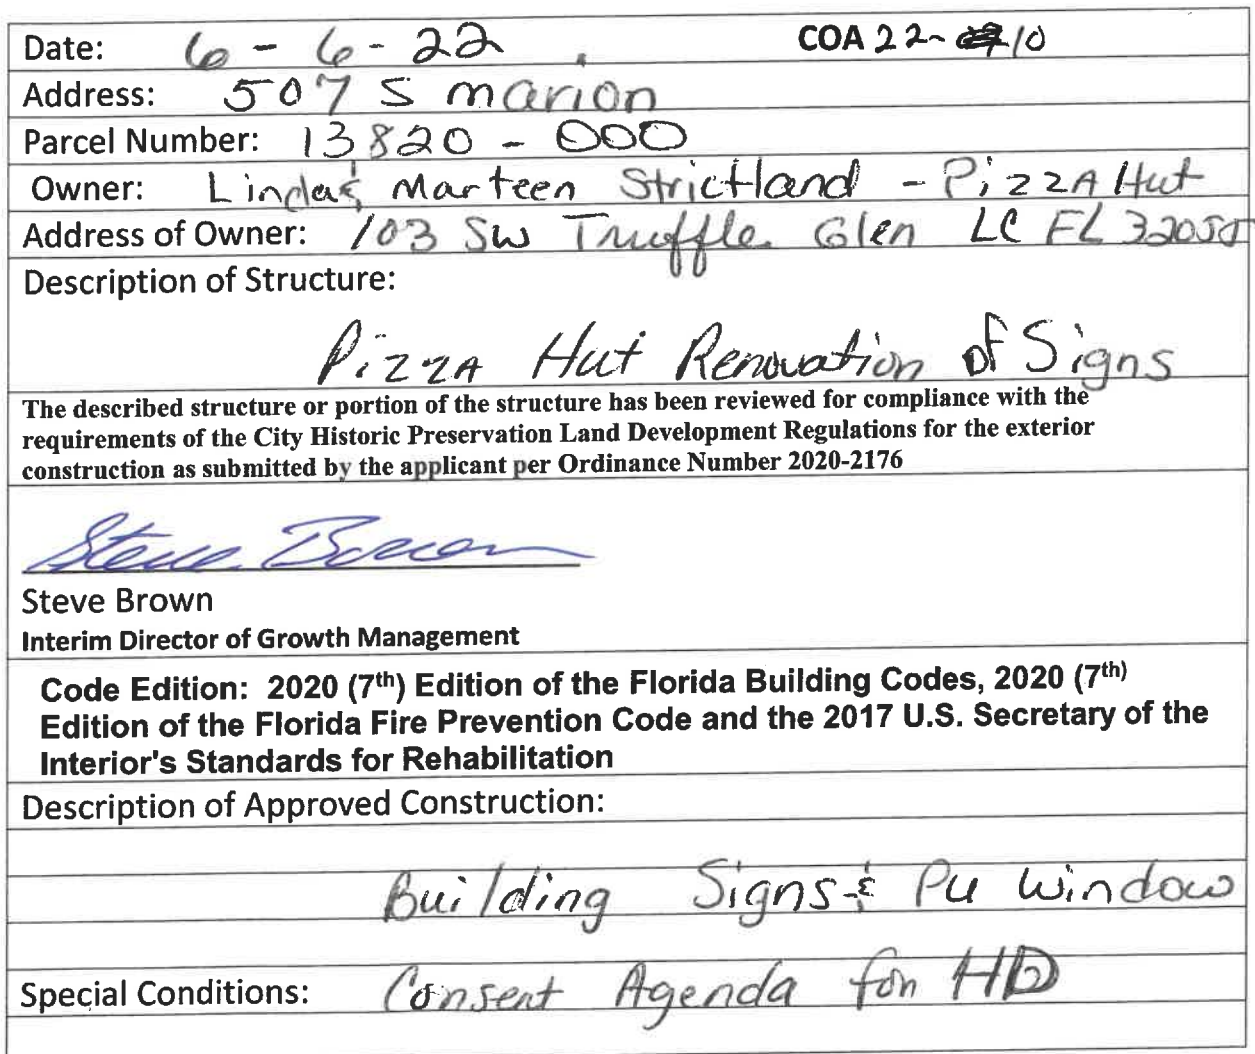 Date: 6 - 6 - 22 COA 22-10
Address: 507 S Marion
Parcel Number: 13820 - 000
Owner: Linda & Marteen Strictland - Pizza Hut
Address of Owner: 103 SW Truffle Glen LC FL 32055
Description of Structure:
Pizza Hut Renovation of Signs
The described structure or portion of the structure has been reviewed for compliance with the
requirements of the City Historic Preservation Land Development Regulations for the exterior
construction as submitted by the applicant per Ordinance Number 2020-2176
Steve Brown
Steve Brown
Interim Director of Growth Management
Code Edition: 2020 (7th) Edition of the Florida Building Codes, 2020 (7th)
Edition of the Florida Fire Prevention Code and the 2017 U.S. Secretary of the
Interior's Standards for Rehabilitation
Description of Approved Construction:
Building Signs & Pu Window
Special Conditions: Consent Agenda for HD